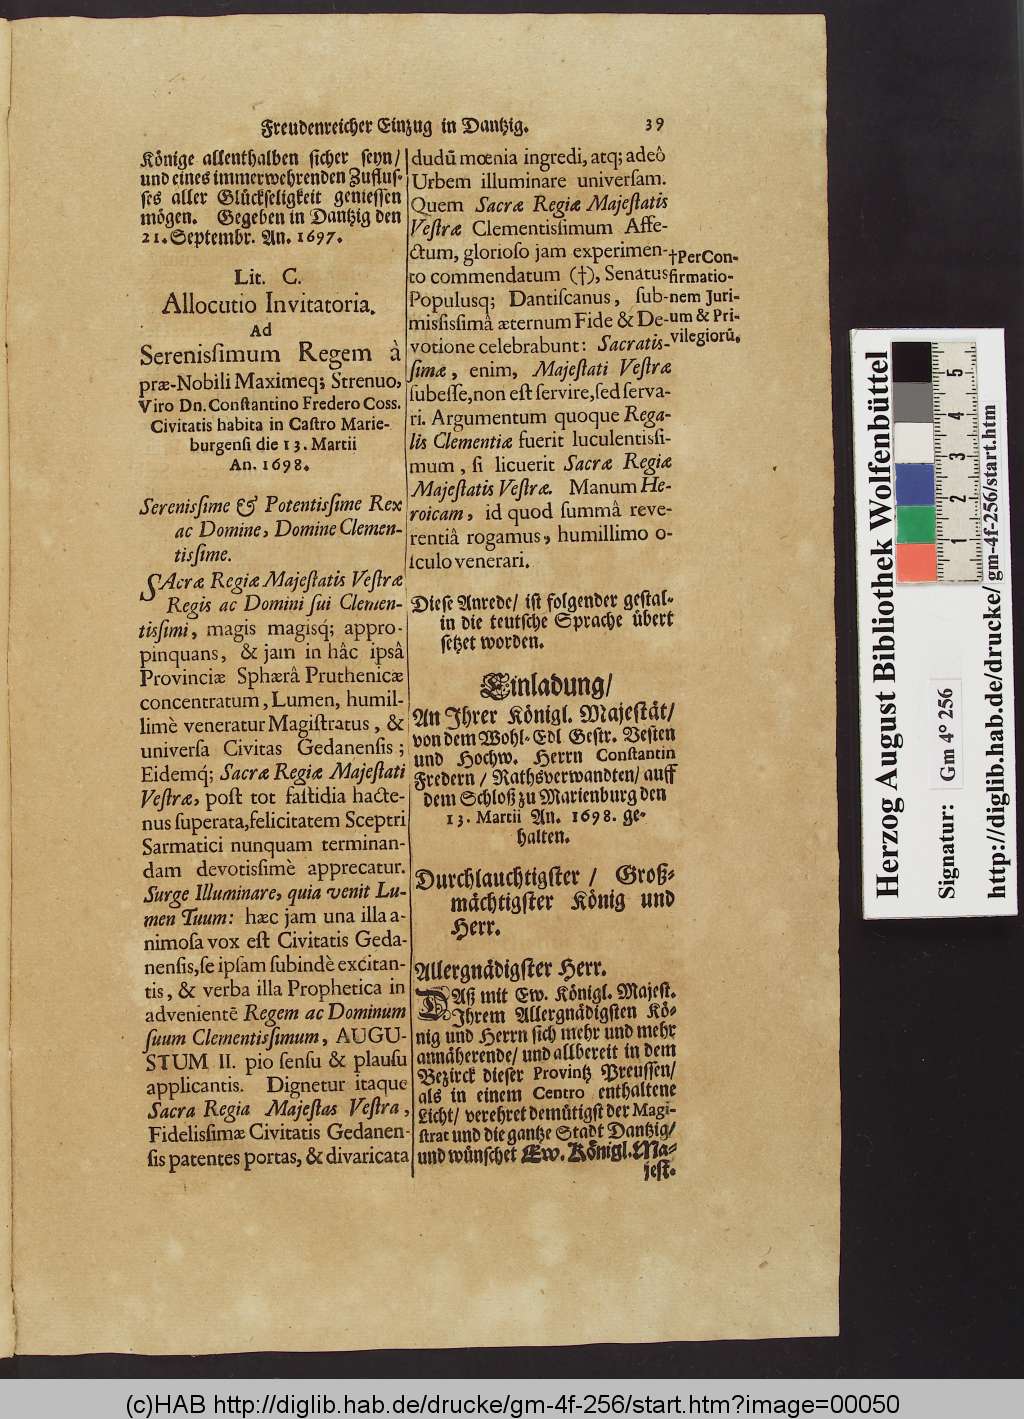 Freudenreicher Einzug in Dantzig. 39
Könige allenthalben sicher seyn/
und eines immerwehrenden Zuflus-
ses aller Glückseligkeit geniessen
mögen. Gegeben in Dantzig den
21. Septembr. An. 1697.
Lit. C.
Allocutio Invitatoria.
Ad
Serenissimum Regem à
præ-Nobili Maximeq; Strenuo,
Viro Dn. Constantino Fredero Coss.
Civitatis habita in Castro Marie-
burgensi die 13. Martii
An. 1698.
Serenissime & Potentissime Rex
ac Domine, Domine Clemen-
tissime.
SAcræ Regiæ Majestatis Vestræ
Regis ac Domini sui Clemen-
tissimi, magis magisq́; appro-
pinquans, & jam in hâc ipsâ
Provinciæ Sphærâ Pruthenicæ
concentratum, Lumen, humil-
limè veneratur Magistratus, &
universa Civitas Gedanensis;
Eidemq́; Sacræ Regiæ Majestati
Vestræ, post tot fastidia hacte-
nus superata, felicitatem Sceptri
Sarmatici nunquam terminan-
dam devotissimè apprecatur.
Surge Illuminare, quia venit Lu-
men Tuum: hæc jam una illa a-
nimosa vox est Civitatis Geda-
nensis, se ipsam subindè excitan-
tis, & verba illa Prophetica in
advenientē Regem ac Dominum
suum Clementissimum, AUGU-
STUM II. pio sensu & plausu
applicantis. Dignetur itaque
Sacra Regia Majestas Vestra,
Fidelissimæ Civitatis Gedanen-
sis patentes portas, & divaricata
dudū mœnia ingredi, atq; adeô
Urbem illuminare universam.
Quem Sacræ Regiæ Majestatis
Vestræ Clementissimum Affe-
ctum, glorioso jam experimen-
to commendatum (†), Senatus
Populusq; Dantiscanus, sub-
missisimâ æternum Fide & De-
votione celebrabunt: Sacratis-
simæ, enim, Majestati Vestræ
subesse, non est servire, sed serva-
ri. Argumentum quoque Rega-
lis Clementiæ fuerit luculentissi-
mum, si licuerit Sacræ Regiæ
Majestatis Vestræ. Manum He-
roicam, id quod summâ reve-
rentiâ rogamus, humillimo o-
sculo venerari.
†Per Con-
firmatio-
nem Juri-
um & Pri-
vilegiorū.
Diese Anrede/ ist folgender gestal-
in die teutsche Sprache übert
setzet worden.
Einladung/
An Ihrer Königl. Majestät/
von dem Wohl-Edl Gestr. Vesten
und Hochw. Herrn Constantin
Fredern / Rathsverwandten/ auff
dem Schloß zu Marienburg den
13. Martii An. 1698. ge-
halten.
Durchlauchtigster / Groß-
mächtigster König und
Herr.
Allergnädigster Herr.
DAß mit Ew. Königl. Majest.
Ihrem Allergnädigsten Kö-
nig und Herrn sich mehr und mehr
annäherende/ und allbereit in dem
Bezirck dieser Provintz Preussen/
als in einem Centro enthaltene
Licht/ verehret demütigst der Magi-
strat und die gantze Stadt Dantzig/
und wünschet Ew. Königl. Ma-
jest.
Herzog August Bibliothek Wolfenbüttel
Signatur: Gm 4° 256
http://diglib.hab.de/drucke/gm-4f-256/start.htm
1 2 3 4 5
(c)HAB http://diglib.hab.de/drucke/gm-4f-256/start.htm?image=00050